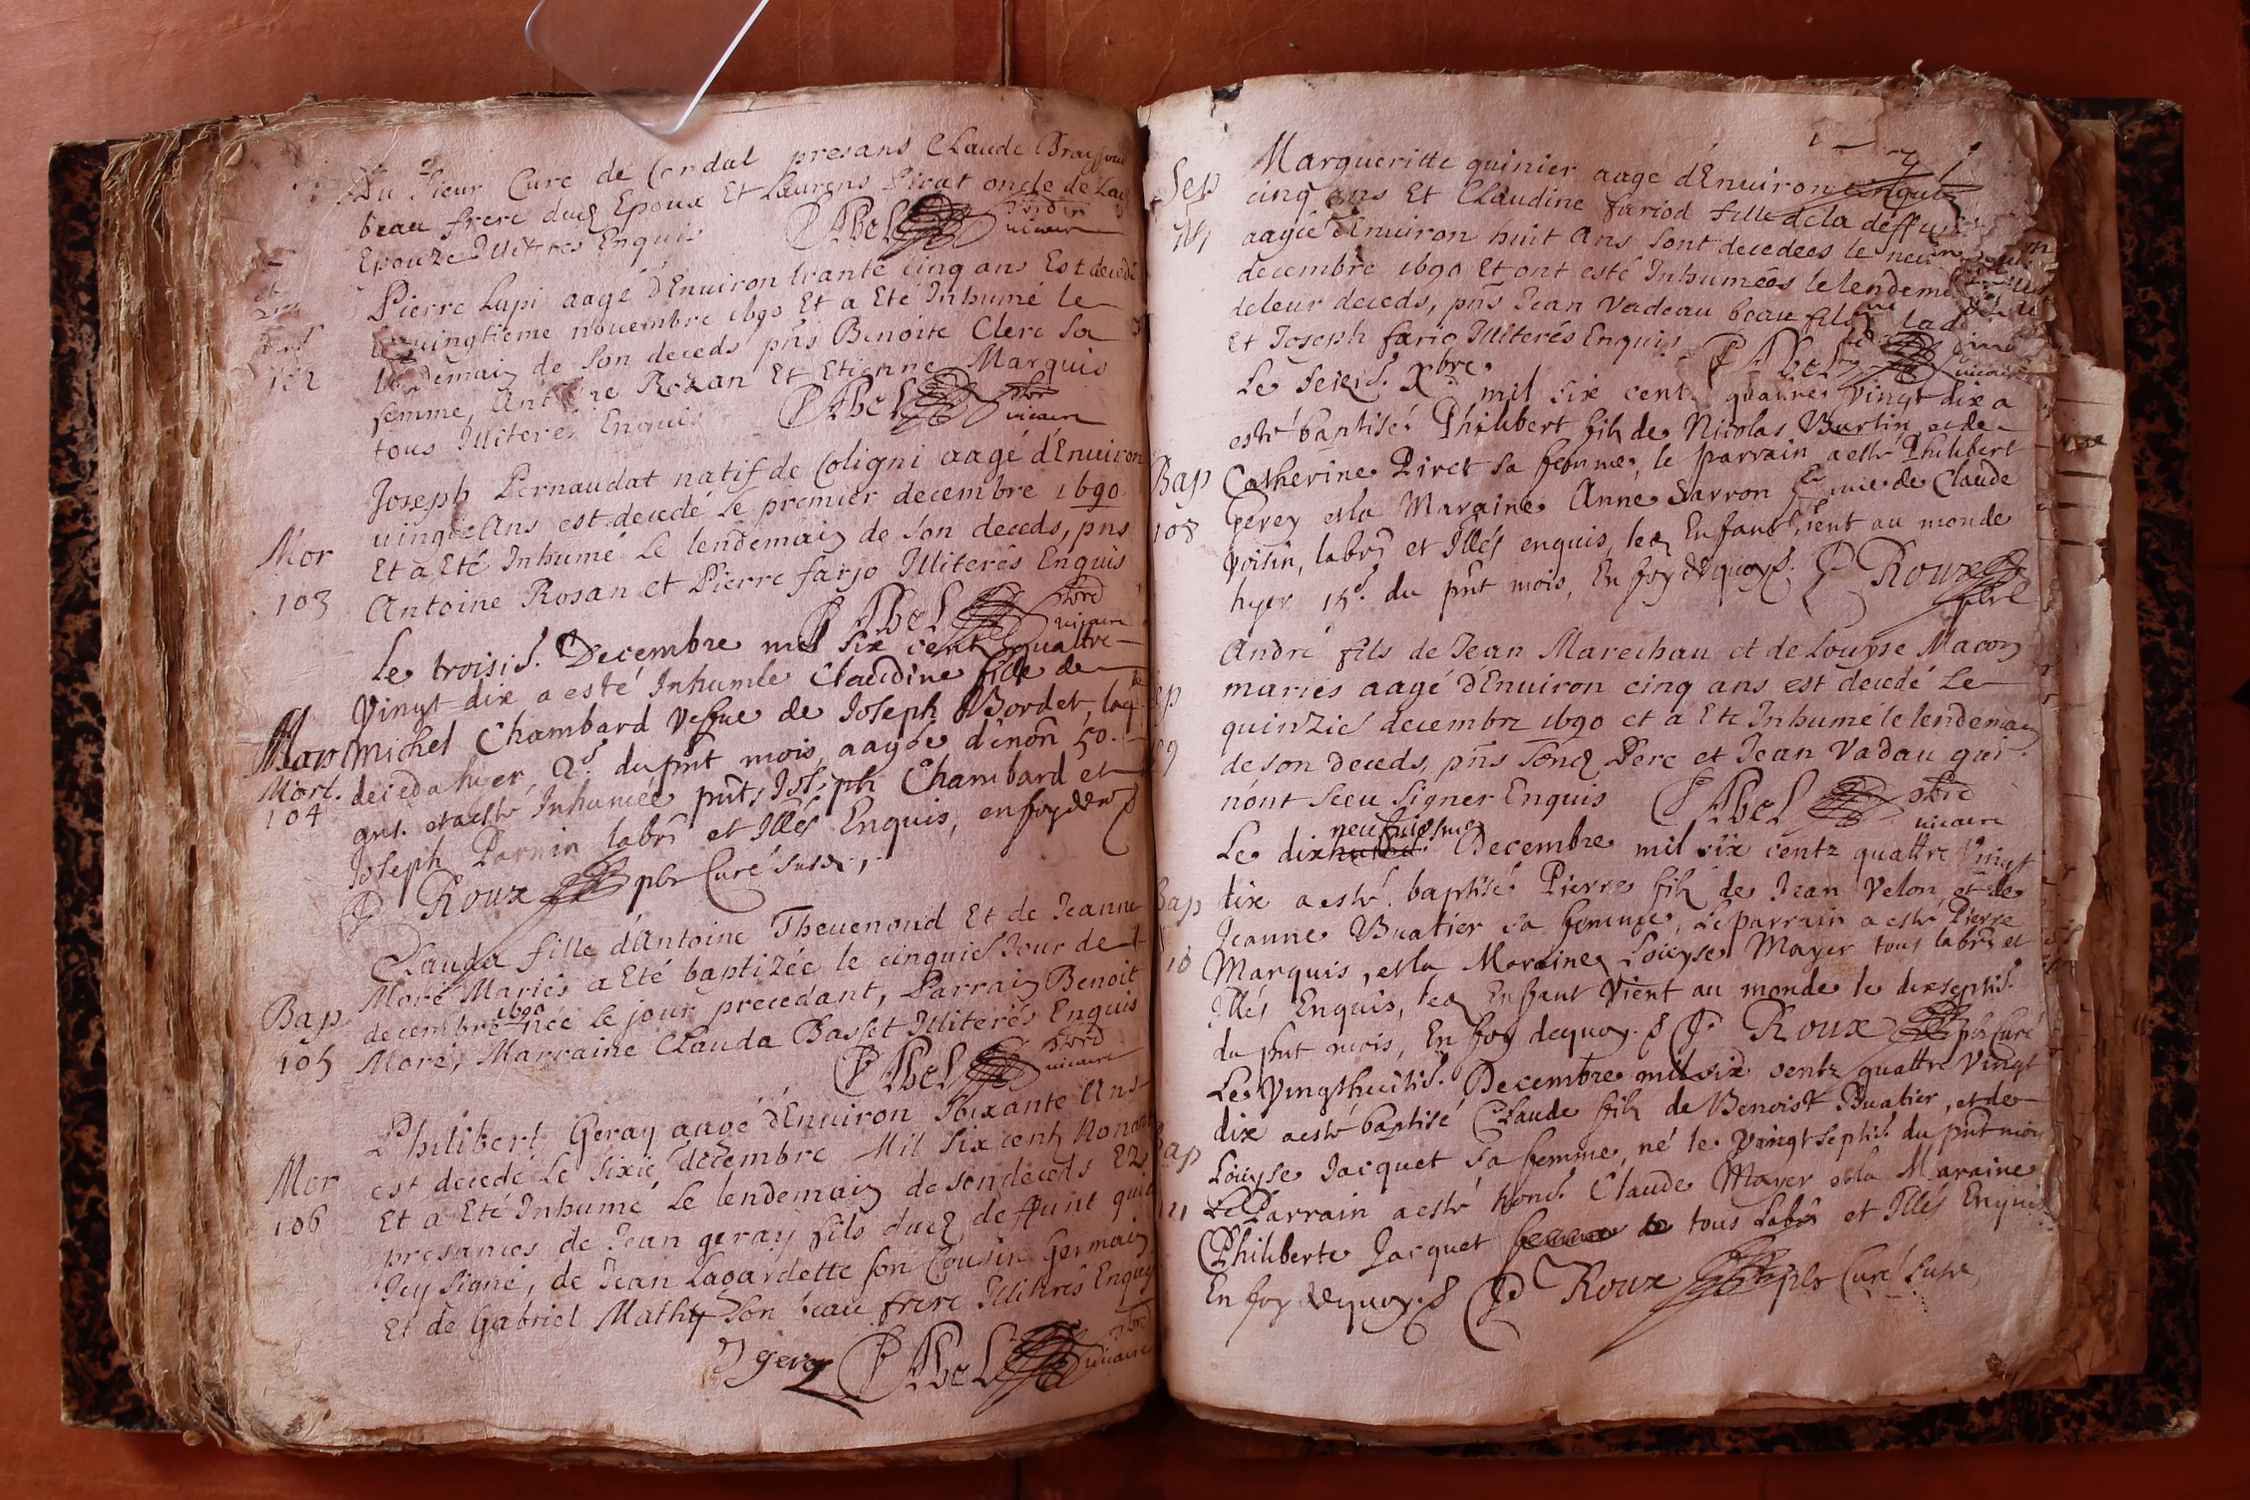 Du Sieur Curé de Cordal presans Claude
beau frere dud Epoux Et Laurens Pirat oncle de Lad
Epouze Illitres Enquis P Abel pbre vicaire
102
Pierre Lapi aagé d'Enuiron trante cinq ans Est decedé
le vingtieme nouembre 1690 Et a Eté Inhumé le
lendemain de son deceds pns Benoite Clerc sa
femme, Antoine Rozan Et Etienne Marquis
tous Illiterés Enquis P Abel pbre vicaire
Mor
103
Joseph Pernaudat natif de Coligni aagé d'Enuiron
uingt Ans est decedé le premier decembre 1690
Et a Eté Inhumé Le lendemain de son deceds, pns
Antoine Rosan et Pierre farjo Illiterés Enquis
P Abel pbre vicaire
Mort.
104
Le troisis. Decembre mil six cent quattre
Vingt dix a esté Inhumée Claudine fille de
Michel Chambard Vefue de Joseph Bordet, laq
deceda hyer 2e. du pnt mois, aagée d'enon 50.
ans. et aesté Inhumée pnts Joseph Chambard et
Joseph Parnin labrs et Illés Enquis, en foy de
P Roux pbr Curé susd.
Bap
105
Clauda fille d'Antoine Theuenoud Et de Jeanne
Moré Mariés a Eté baptizée le cinquies Jour de
decembre 1690 née le jour precedant, Parrain Benoit
Moré, Marraine Clauda Basset Illiterés Enquis
P Abel pbre vicaire
Mor
106
Philibert Geray aagé d'Enuiron soixante Ans
est decedé Le sixie decembre Mil six cent nonante
Et a Eté Inhumé Le lendemain de son deceds En
presances de Jean geray fils dud deffunt qui a
Icy signé, de Jean Lagardette son Cousin Germain
Et de Gabriel Mathy son beau frere Illitrés Enquis
J gery P Abel pbre vicaire
Sep
Margueritte quinier aagé d'Enuiron
cinq ans Et Claudine fariod fille de la deffu
aagée d'Enuiron huit Ans sont decedees le
decembre 1690 Et ont esté Inhumées le lendem
de leur deceds, pns Jean Vadeau beau fils
Et Joseph fario Illiterés Enquis P Abel vicaire
Bap
108
Le seizis. Xbre mil six cent quattre Vingt dix a
esté baptisé Philibert fils de Nicolas Burtin et de
Catherine Piret sa femme, le parrain a esté Philibert
Gerey et la Maraine Anne Sarron femme de Claude
Voisin, labrs et Illés enquis, led Enfant vient au monde
hyer 15e. du pnt mois, En foy de quoy. P Roux pbre
André fils de Jean Marechau et de Louyse Macon
mariés aagé d'Enuiron cinq ans est decedé Le
quinzie decembre 1690 et a Eté Inhumé le lendemain
de son deceds, pns sond Pere et Jean Vadau qui
n'ont sceu signer Enquis P Abel pbre vicaire
Bap
Le dix neufuiesme Decembre mil six centz quattre Vingt
dix a esté baptisé Pierre fils de Jean Velon, et de
Jeanne Buatier sa femme, Le parrain a esté Pierre
Marquis, et la Moraine Louyse Mayer tous labrs et
Illés Enquis, led Enfant Vient au monde le dixseptis.
du pnt mois, En foy de quoy. P Roux pbr Curé
Bap
111
Le Vingthuitis. Decembre mil six centz quattre Vingt
dix a esté baptisé Claude fils de Benoist Buatier, et de
Louyse Jacquet sa femme, né le Vingt septis. du pnt mois
Le Parrain a esté hons. Claude Mayer et la Maraine
Philiberte Jacquet tous Labrs et Illés Enquis
En foy de quoy. P Roux pbr Curé susd